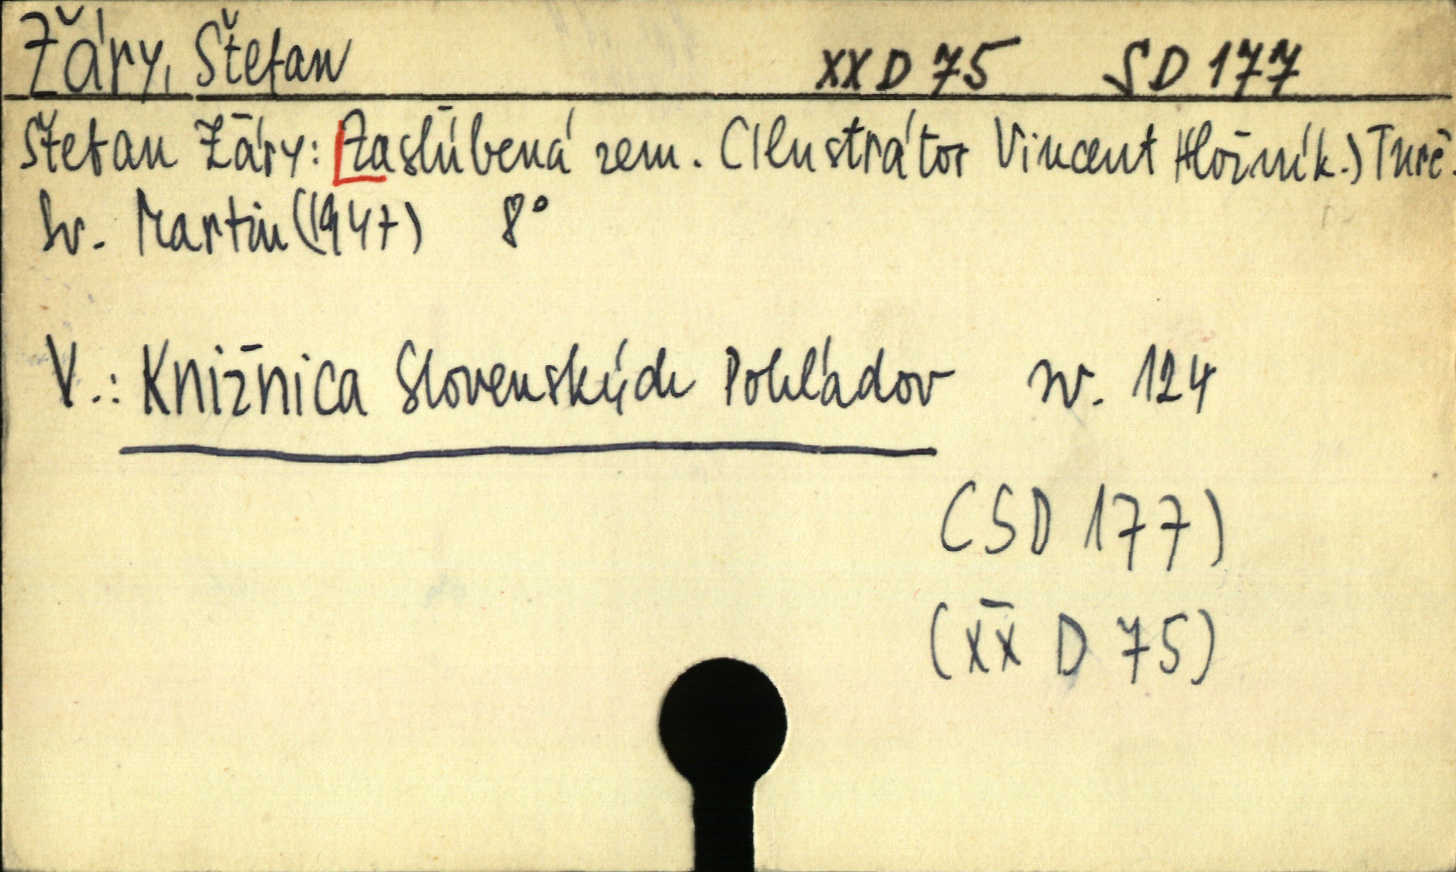 Žáry, Štefan XX D 75 SD 177
Štefan Žáry: Zaslúbená zem. (Ilustrátor Vincent Hložník.) Turč.
Sv. Martin (1947) 8°
V.: Knižnica Slovenských Pohľadov sv. 124
(SD 177)
(XX D 75)